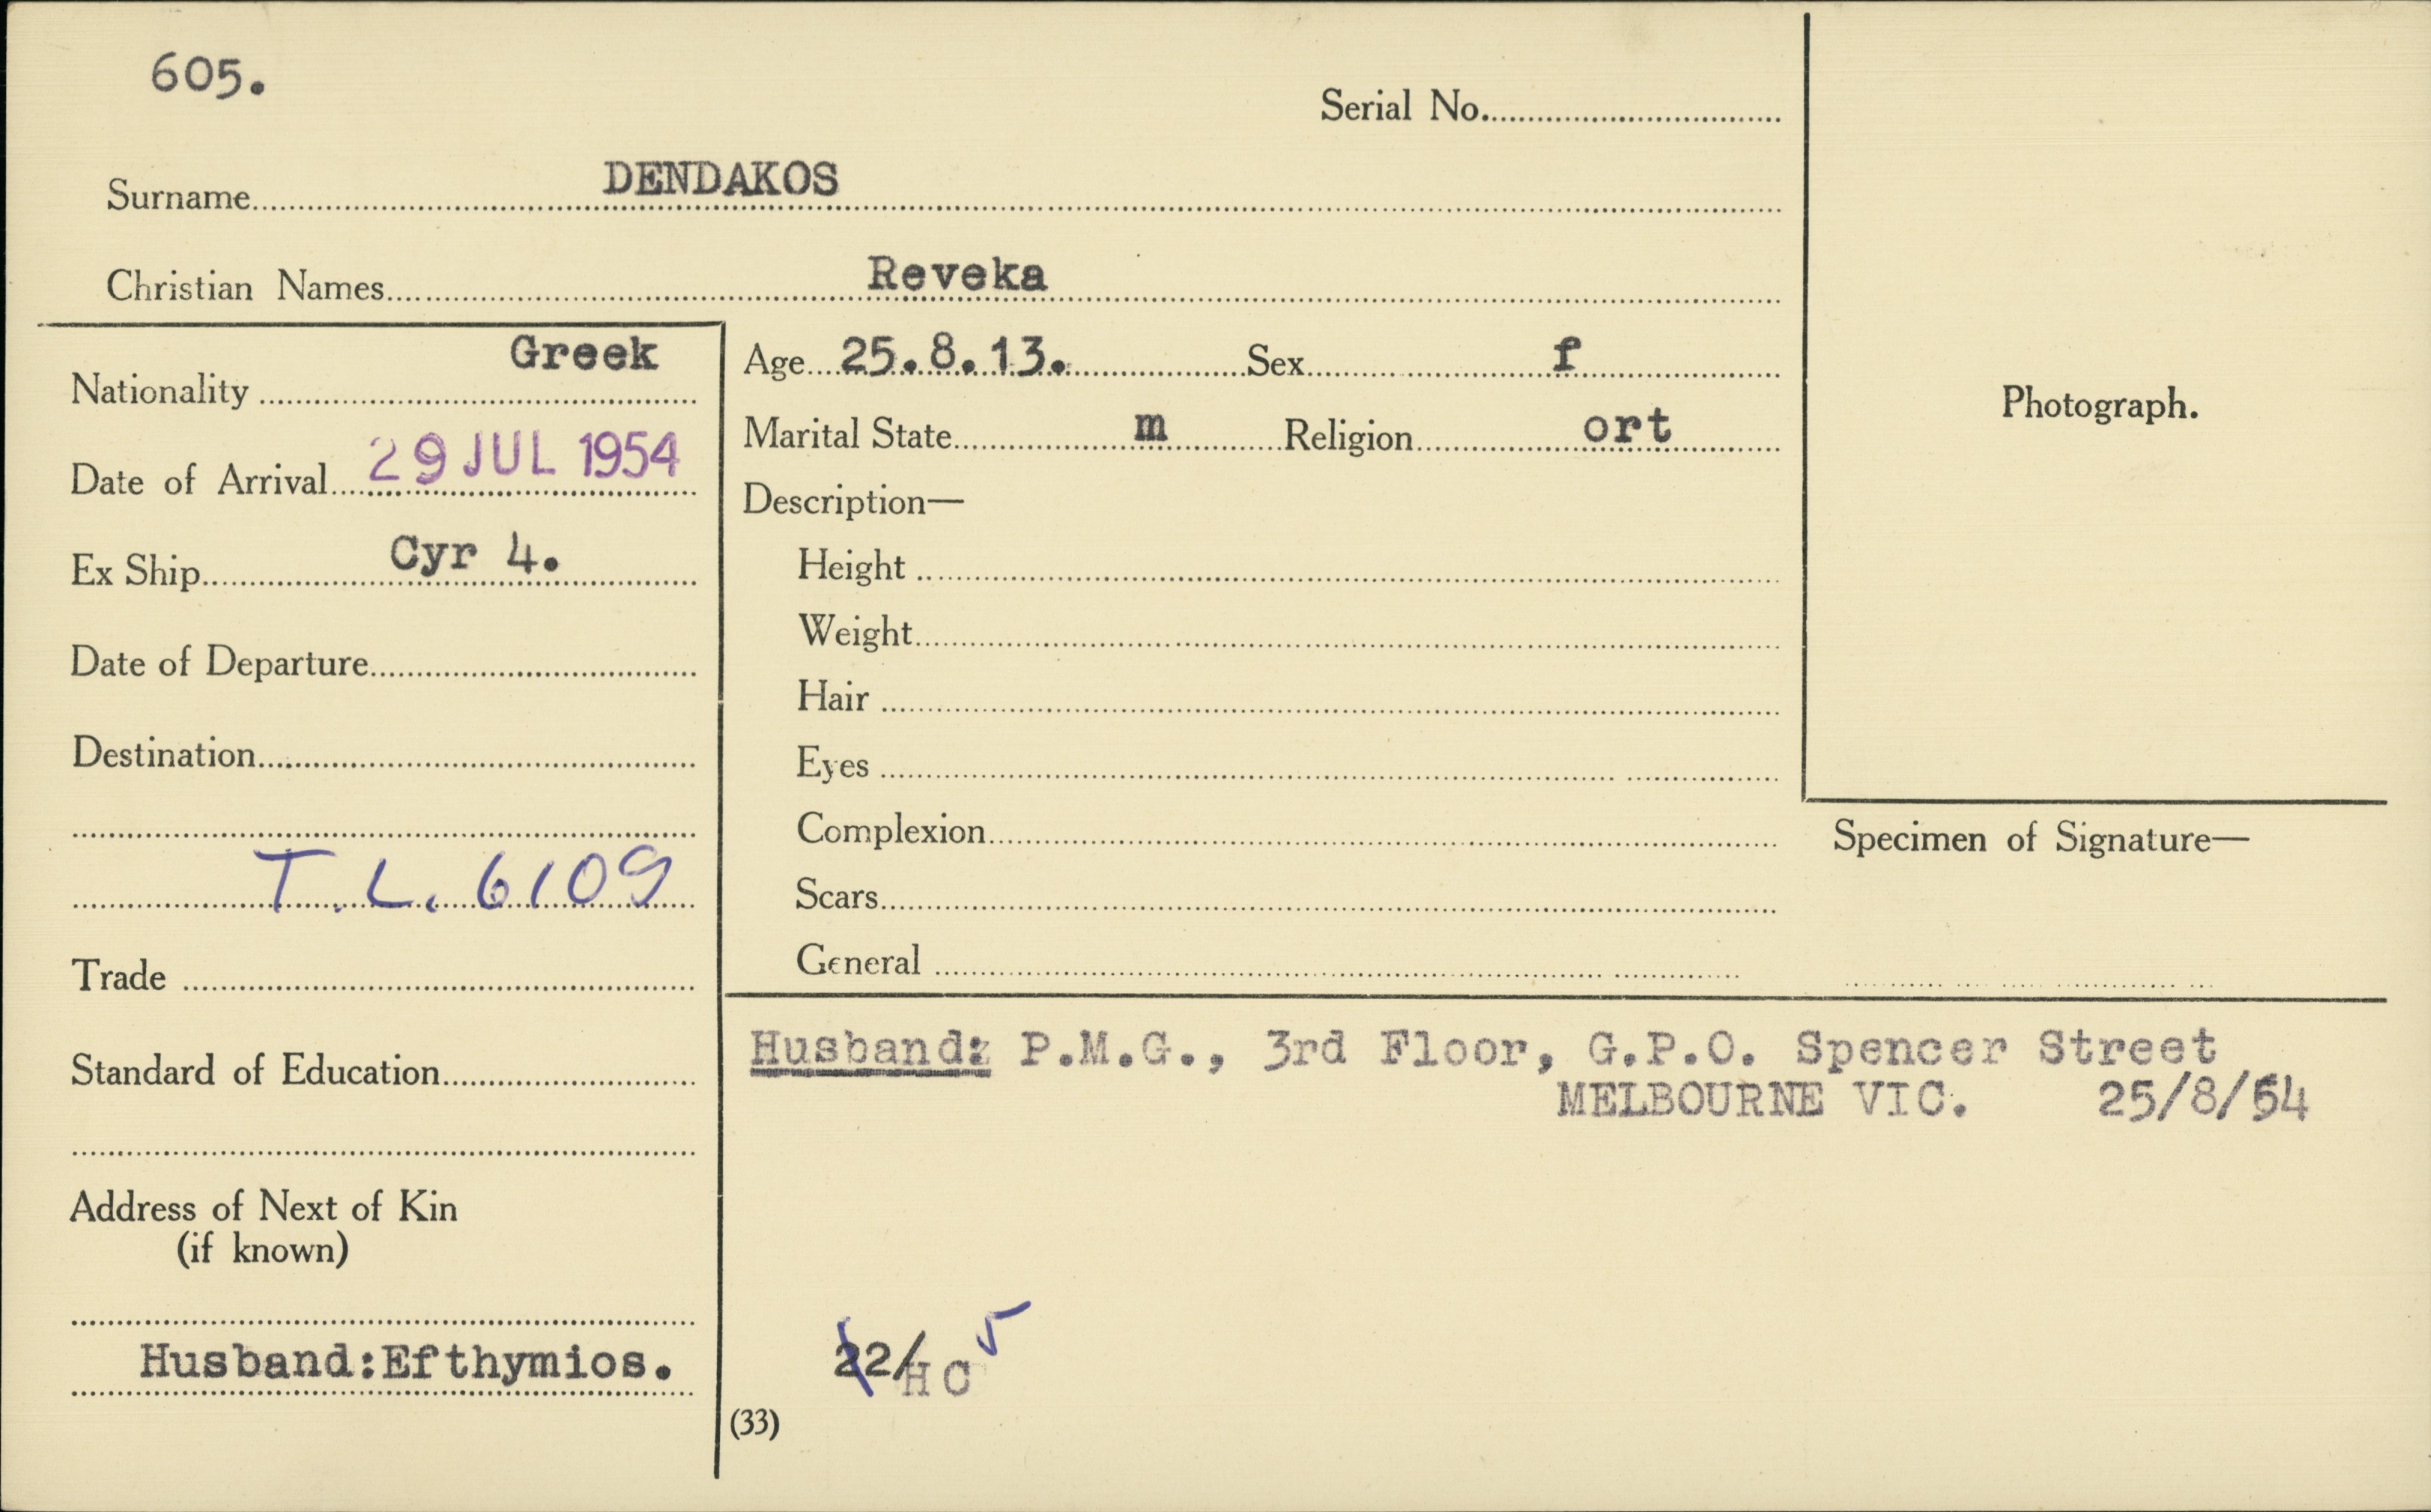 605.
Serial No.
Surname DENDAKOS
Christian Names Reveka
Nationality Greek
Date of Arrival 29 JUL 1954
Ex Ship Cyr 4.
Date of Departure
Destination
T.L. 6109
Trade
Standard of Education
Address of Next of Kin
(if known)
Husband:Efthymios.
Age 25.8.13. Sex f
Marital State m Religion ort
Description—
Height
Weight
Hair
Eyes
Complexion
Scars
General
Photograph.
Specimen of Signature—
Husband: P.M.G., 3rd Floor, G.P.O. Spencer Street
MELBOURNE VIC. 25/8/54
22/HC 5
(33)